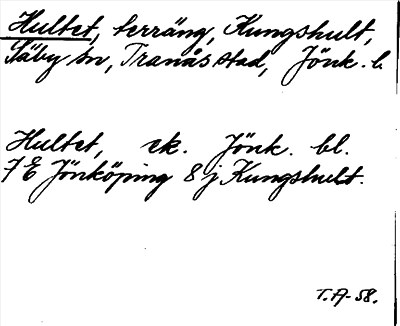 Hultet, terräng, Kungshult,
Säby sn, Tranås stad, Jönk. l.
Hultet, ek. Jönk. bl.
7E Jönköping 8j Kungshult.
T.A-58.